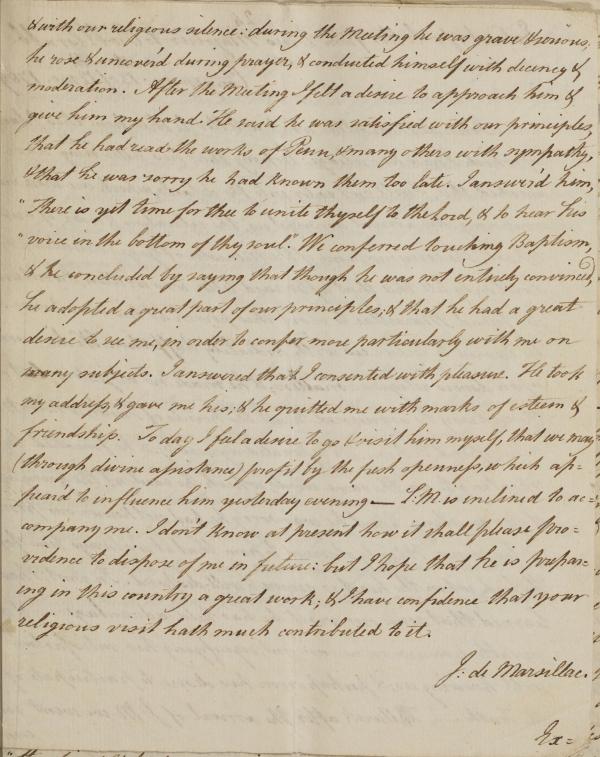 & with our religious silence: during the Meeting he was grave & serious,
he rose & uncover'd during prayer, & conducted himself with decency &
moderation. After the Meeting I felt a desire to approach him &
give him my hand. He said he was satisfied with our principles,
that he had read the works of Penn, & many others with sympathy,
& that he was sorry he had known them too late. I answer'd him,
"There is yet time for thee to unite thyself to the Lord, & to hear his
"voice in the bottom of thy soul." We conferred touching Baptism,
& he concluded by saying that though he was not entirely convinced,
he adopted a great part of our principles; & that he had a great
desire to see me, in order to confer more particularly with me on
many subjects. I answered that I consented with pleasure. He took
my address, & gave me his; & he quitted me with marks of esteem &
friendship. To day I feel a desire to go & visit him myself, that we may
(through divine assistance) profit by the fresh openness, which ap-
pear'd to influence him yesterday evening — L: M. is inclined to ac=
company me. I don't know at present how it shall please Pro=
vidence to dispose of me in future: but I hope that he is prepar=
ing in this country a great work; & I have confidence that your
religious visit hath much contributed to it.
J: de Marsillac.
Ex=